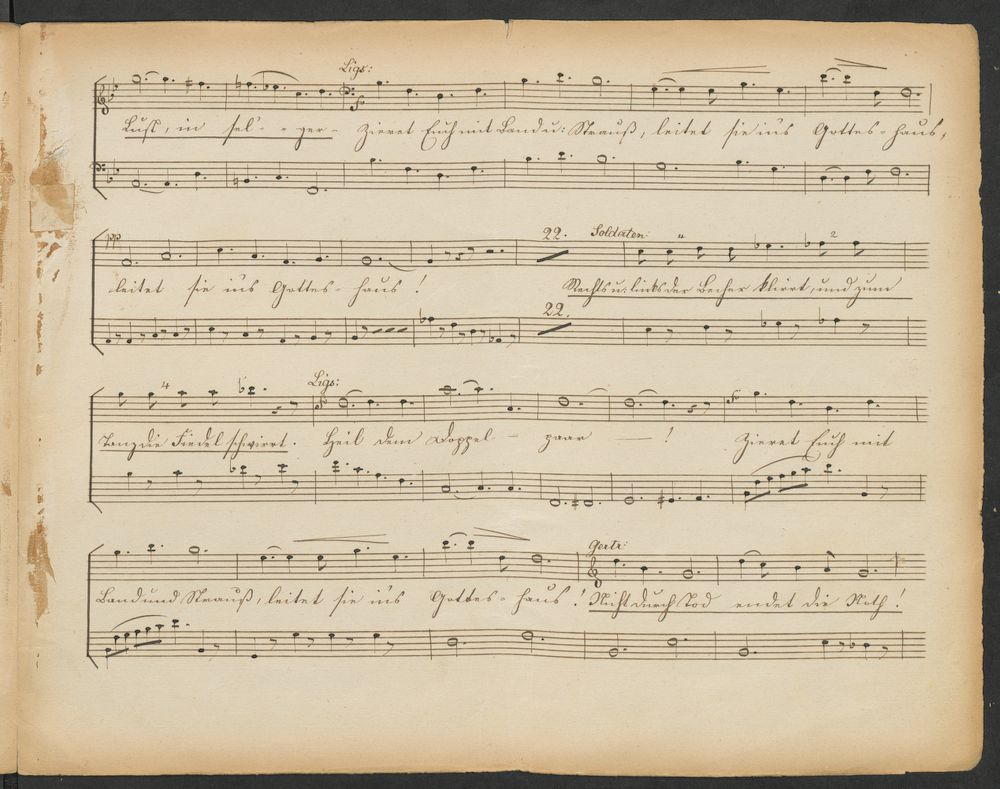 Ligs:
Lust, in sel - - ger - Zieret Euch mit Band u: Strauß, leitet sie in's Gottes - haus,
pp
leitet sie in's Gottes - haus !
22. Soldaten:
Rechts u: links der Becher klirrt, und zum
22.
Ligs:
Tanz die Fiedel schwirrt. Heil dem Doppel - paar - ! Zieret Euch mit
Gertr:
Band und Strauß, leitet sie in's Gottes - haus ! Nicht durch Tod endet die Noth !